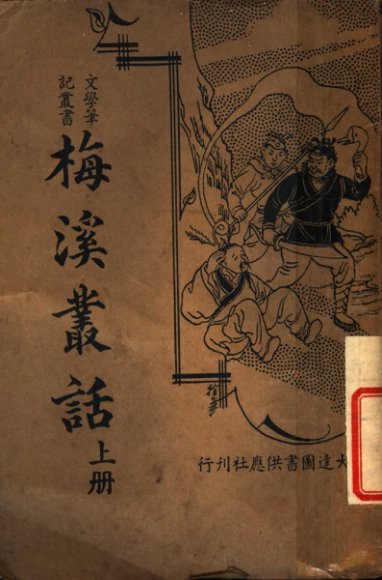 文學筆
記叢書
梅溪叢話
上册
大達圖書供應社刊行